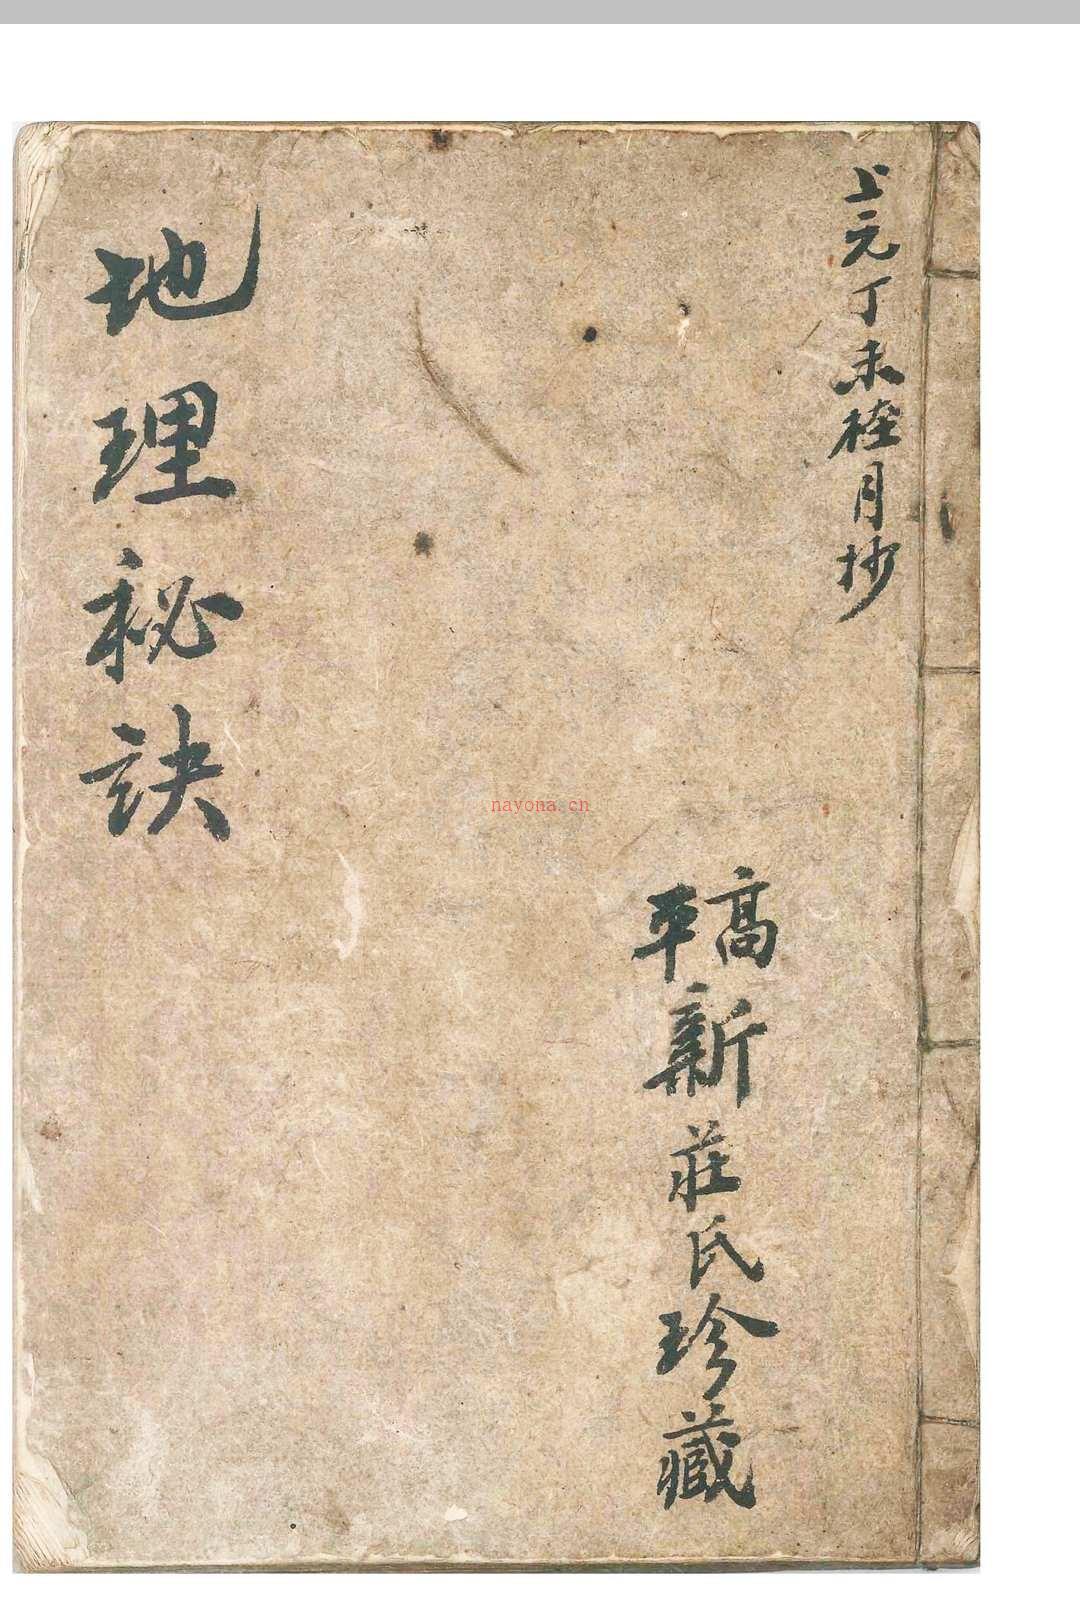 上元丁未桂月抄
高平新莊氏珍藏
地理秘訣
nayona.cn